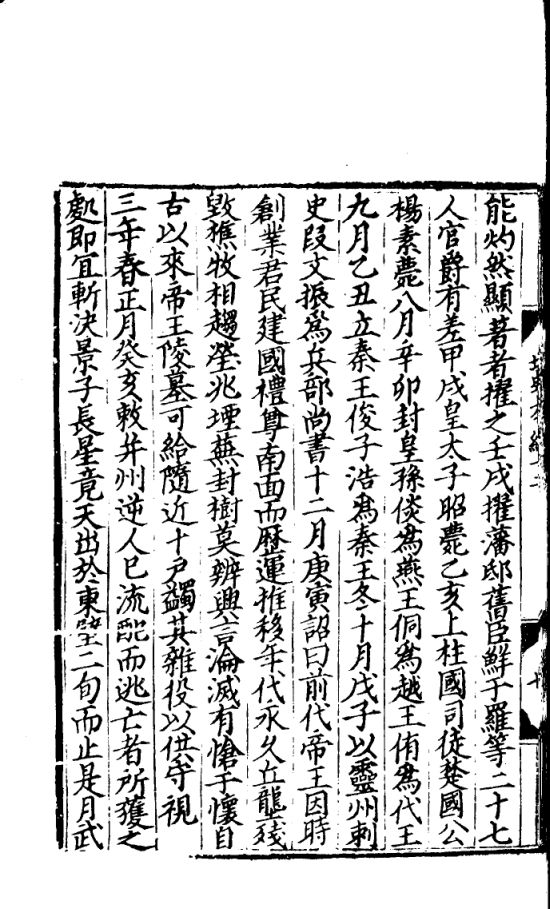 能灼然顯著者擢之壬戌擢藩邸舊臣鮮于羅等二十七
人官爵有差甲戌皇太子昭薨乙亥上柱國司徒楚國公
楊素薨八月辛卯封皇孫倓為燕王侗為越王侑為代王
九月乙丑立秦王俊子浩為秦王冬十月戊子以靈州刺
史段文振為兵部尚書十二月庚寅詔曰前代帝王因時
創業君民建國禮尊南面而歷運推移年代永久丘壟殘
毀樵牧相趨塋兆堙蕪封樹莫辨興言淪滅有愴于懷自
古以來帝王陵墓可給隨近十戶蠲其雜役以供守視
三年春正月癸亥敕并州逆人已流配而逃亡者所獲之
處即宜斬决景子長星竟天出於東壁二旬而止是月武